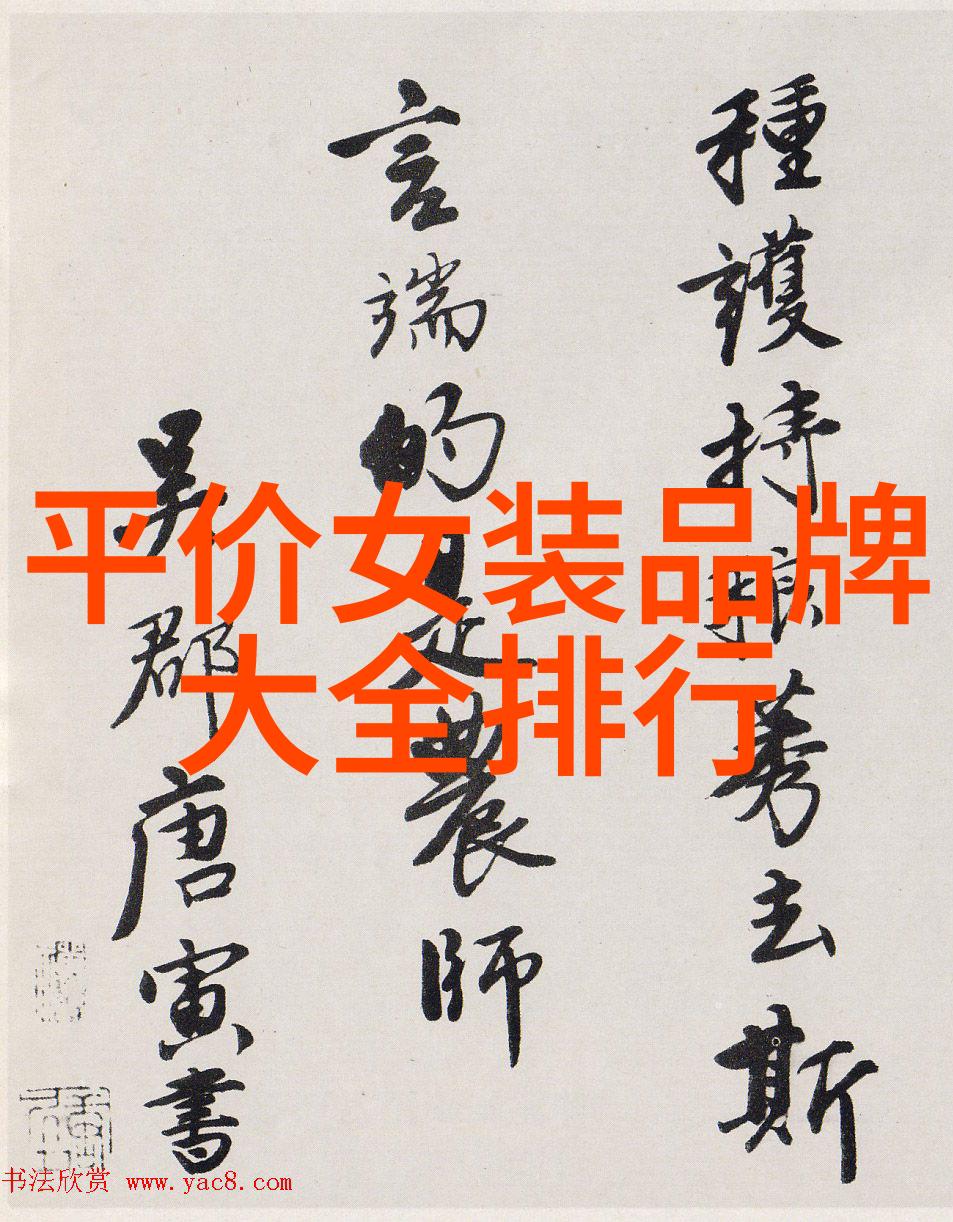 種護持稂莠去斯
言端的是農師
吳郡唐寅書
平价女装品牌
大全排行
书法欣赏 www.yac8.com